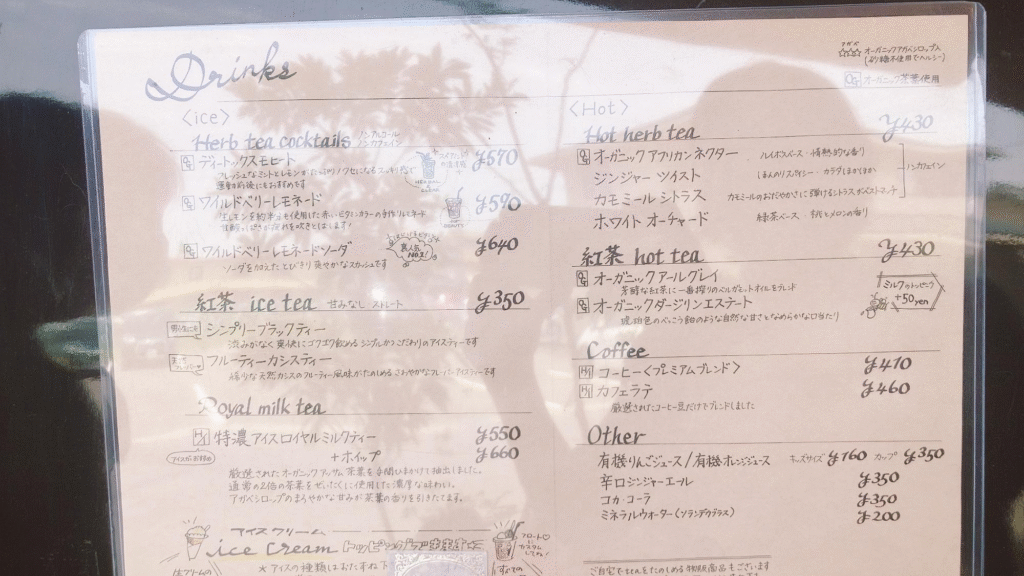 Drinks
オーガニックアガベシロップ入
(砂糖不使用でヘルシー)
オーガニック茶葉使用
<ice>
Herb tea cocktails ノンアルコール
ノンカフェイン
デトックスモヒート ¥570
フレッシュなミントとレモンが
運動前後にもおすすめです
ワイルドベリーレモネード ¥590
ワイルドベリーレモネードソーダ ¥640
ソーダを加えたとびきり爽やかなスカッシュです
人気
NO.1!
紅茶 ice tea 甘みなし・ストレート ¥350
シンプリーブラックティー
渋みがなく爽快にゴクゴク飲めるシンプルかつこだわりのアイスティーです
フルーティーカシスティー
稀少な天然カシスのフルーティー風味がたのしめるさわやかなフレーバーアイスティーです
Royal milk tea
H/I 特濃アイスロイヤルミルクティー ¥550
アイスがおすすめ
+ホイップ ¥660
厳選されたオーガニックアッサム茶葉を手間ひまかけて抽出しました。
通常の2倍の茶葉をぜいたくに使用した濃厚な味わい。
アガベシロップのまろやかな甘みが茶葉の香りを引きたてます。
アイスクリーム
ice cream トッピング
★アイスの種類はおたずね下
フロート♡
<Hot>
Hot herb tea ¥430
オーガニックアフリカンネクター ルイボスベース・情熱的な香り
ジンジャーツイスト ほんのりスパイシー・カラダぽかぽか
カモミールシトラス カモミールのおだやかさに輝けるシトラスがベストマッチ
ノンカフェイン
ホワイトオーチャード 緑茶ベース 桃とメロンの香り
紅茶 hot tea ¥430
オーガニックアールグレイ
芳醇な紅茶に一番搾りのベルガモットオイルをブレンド
オーガニックダージリンエステート
琥珀色のべっこう飴のような自然な甘さとなめらかな口当たり
ミルクのトッピング
+50yen
Coffee
H/I コーヒー<プレミアムブレンド> ¥410
H/I カフェラテ ¥460
厳選されたコーヒー豆だけでブレンドしました
Other
有機りんごジュース/有機オレンジジュース キッズサイズ ¥160 カップ ¥350
辛口ジンジャーエール ¥350
コカ・コーラ ¥350
ミネラルウォーター(ソランデカブラス) ¥200
ご自宅でteaをたのしめる物販商品もございます